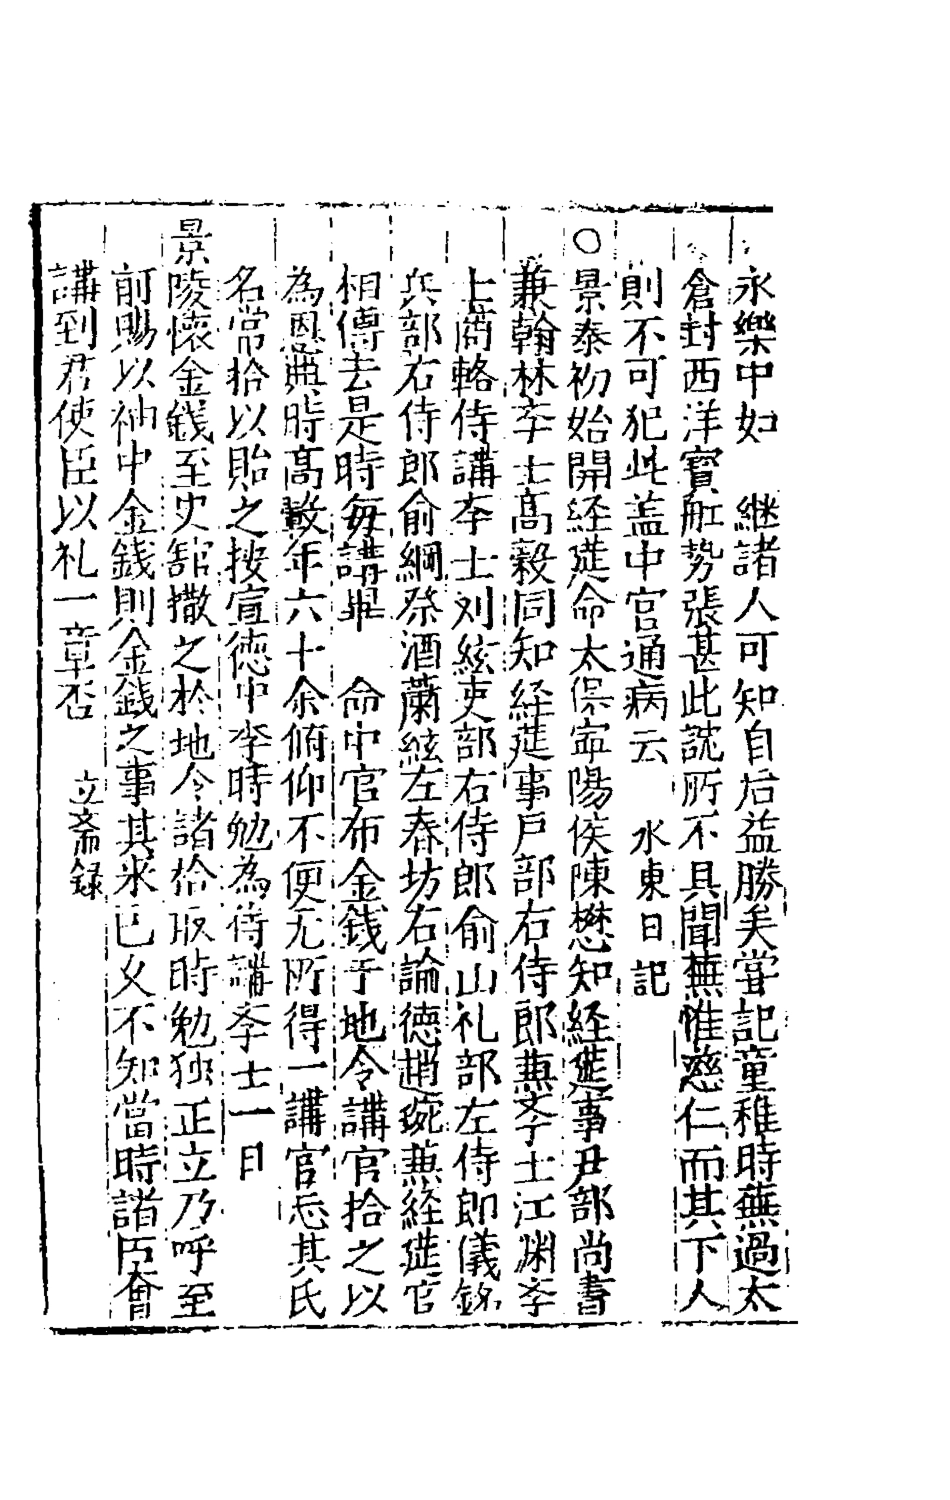 永樂中如　継諸人可知自后益勝矣甞記童稚時蕪過太
倉封西洋寳舡势張甚此説所不具聞蕪惟慈仁而其下人
則不可犯此盖中宫通病云　水東日記
〇景泰初始開経筵命太保寧陽侯陳懋知経筵事丑部尚書
兼翰林李士高穀同知経筵事戶部右侍郎蕪李士江渊李
士商輅侍講李士刘絃吏部右侍郎俞山礼部左侍郎儀銘
兵部右侍郎俞綱祭酒蕭絃左春坊右論徳趙琬蕪経筵官
相傳去是時每講畢　命中官布金錢于地令講官拾之以
為恩典時高穀年六十余俯仰不便无所得一講官忘其氏
名常拾以貽之按宣德中李時勉為待講李士一日
景陵懷金錢至史舘撒之於地令諸拾取時勉独正立乃呼至
前賜以袖中金錢則金錢之事其来已乆不知當時諸臣㑹
講到君使臣以礼一章否　立斎録